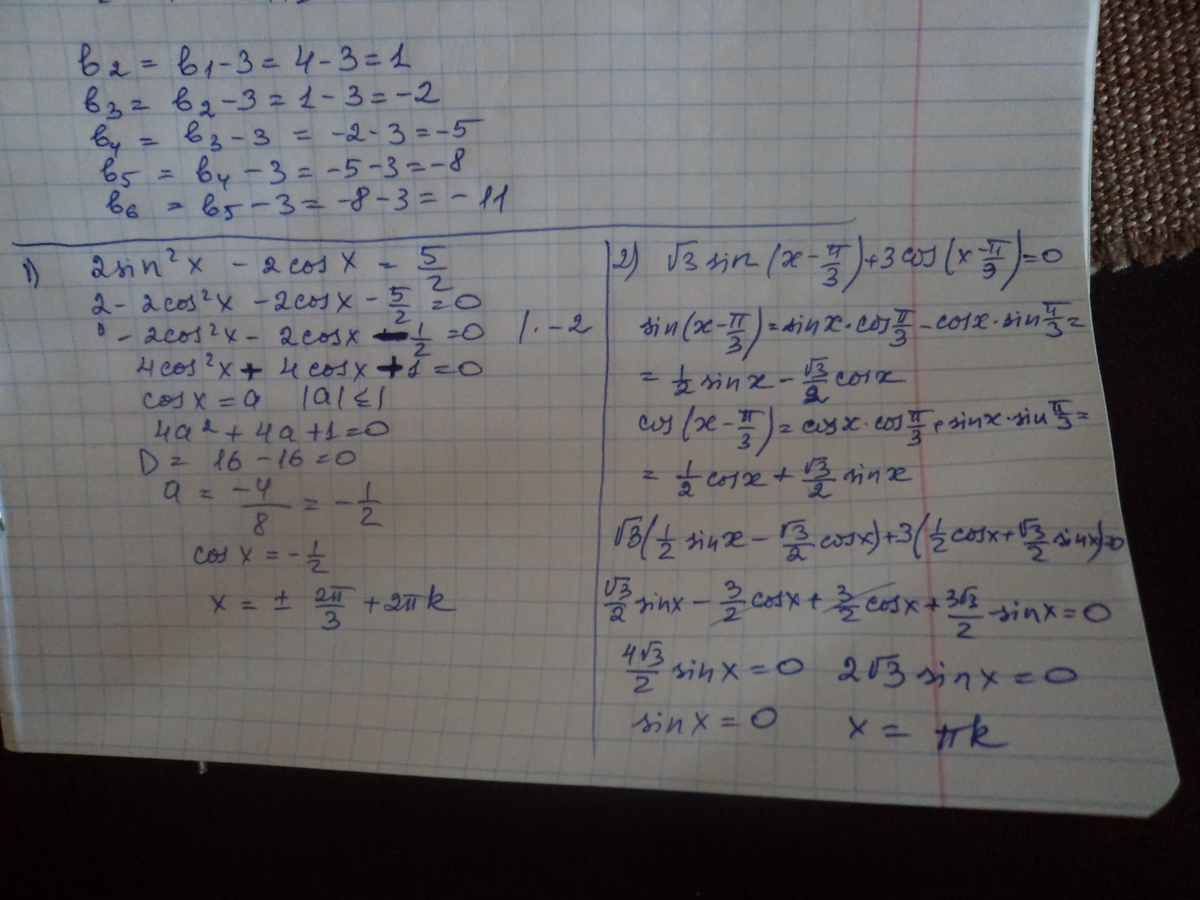 b₂ = b₁ - 3 = 4 - 3 = 1
b₃ = b₂ - 3 = 1 - 3 = -2
b₄ = b₃ - 3 = -2 - 3 = -5
b₅ = b₄ - 3 = -5 - 3 = -8
b₆ = b₅ - 3 = -8 - 3 = -11
1) 2sin²x - 2cosx = 5/2
2 - 2cos²x - 2cosx - 5/2 = 0
- 2cos²x - 2cosx - 1/2 = 0 | · -2
4cos²x + 4cosx + 1 = 0
cosx = a |a| ≤ 1
4a² + 4a + 1 = 0
D = 16 - 16 = 0
a = -4/8 = -1/2
cosx = -1/2
x = ± 2π/3 + 2πk
2) √3 sin(x - π/3) + 3cos(x - π/3) = 0
sin(x - π/3) = sinx · cos π/3 - cosx · sin π/3 =
= 1/2 sinx - √3/2 cosx
cos(x - π/3) = cosx · cos π/3 + sinx · sin π/3 =
= 1/2 cosx + √3/2 sinx
√3(1/2 sinx - √3/2 cosx) + 3(1/2 cosx + √3/2 sinx) = 0
√3/2 sinx - 3/2 cosx + 3/2 cosx + 3√3/2 sinx = 0
4√3/2 sinx = 0 2√3 sinx = 0
sinx = 0 x = πk